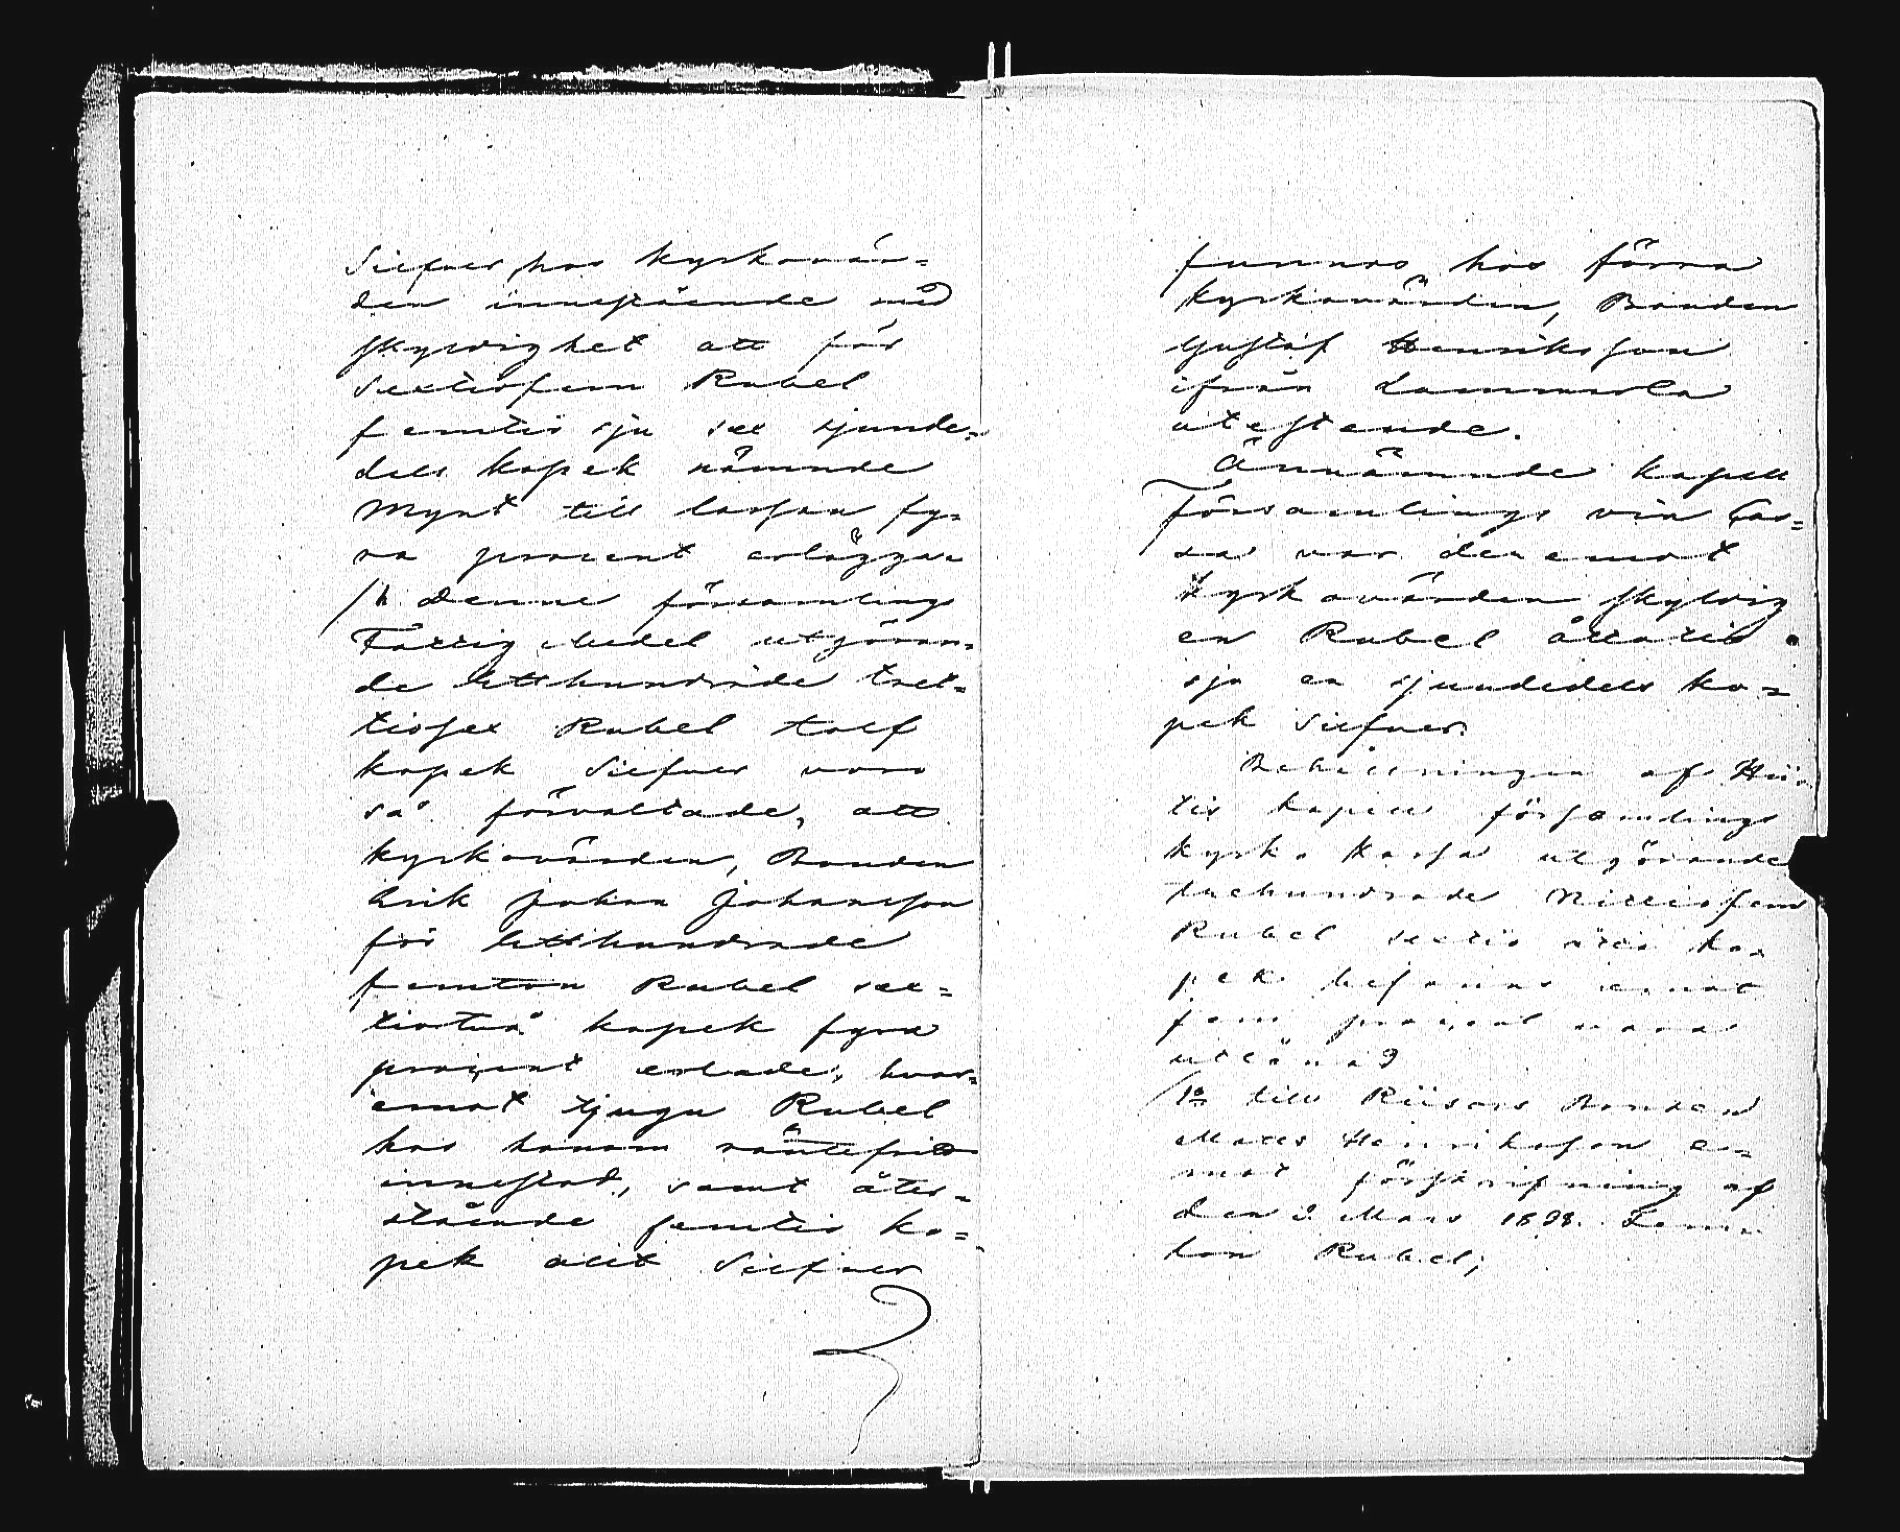 Silfver hos kyrkovär=
den innestående med
skyldighet att för
sextiofem Rubel
femtio sju sex sjunde=
dels kopek nämnde
Mynt till Cassan fy=
ra procent erlägga
/h denne församlings
Fattig Medel utgöran=
de Etthundrade tret=
tiosex Rubel tolf
kopek Silfver voro
så förvaltade, att
kyrkovärden, Bonden
Erik Johan Johansson
för Etthundrade
femton Rubel sex=
tiotvå kopek fyra
procent erlade, hvar=
emot tjugu Rubel
hos honom räntefritt
innestod, samt åter=
stående femtio ko=
pek allt Silfver
funnos hos förra
kyrkovärden, Bonden
Gustaf Henriksson
ifrån Lammala
utestående.
Ännämnde kapell
församlings vin Cas=
sa var deremot
kyrkovärden skyldig
en Rubel åttatio
sju en sjundedels ko=
pek Silfver.
Behållningen af Hii=
tis kapell församlings
kyrko Kassa utgörande
tuehundrade Nittiofem
Rubel sextio åtta ko=
pek befanns emot
fem procent vara
utlånad
/1o till Riisars Bonden
Matts Henriksson e=
mot förskrifning af
den 2 Mars 1838. Fem=
ton Rubel;